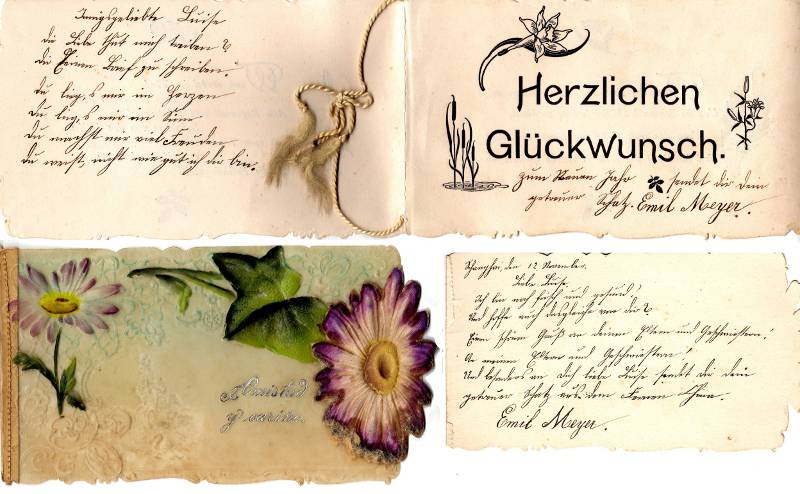 Innigsgeliebte Luise
die Liebe thut mich treiben
die Einen Brief zu schreiben!
Du lieg,s mir im Herzen
Du lieg,s mir im Sinn
Du machst mir viel Freuden
du weist, nicht wie gut ich dir bin.
Herzlichen
Glückwunsch.
zum Neuen Jahr sendet dir dein
getreuer Schatz. Emil Meyer.
Amistad
y cariño.
Shanghai, den 12 November.
Liebe Luise
Ich bin noch frisch und gesund!
Und hoffe auch dasgleiche von dir
Einen schönen Gruß an deinen Eltern und Geschwistern!
An meinen Eltern und Geschwistern!
Und besonders an dich liebe Luise sendet dir dein
getreuer Schatz aus dem Fernen China.
Emil Meyer.